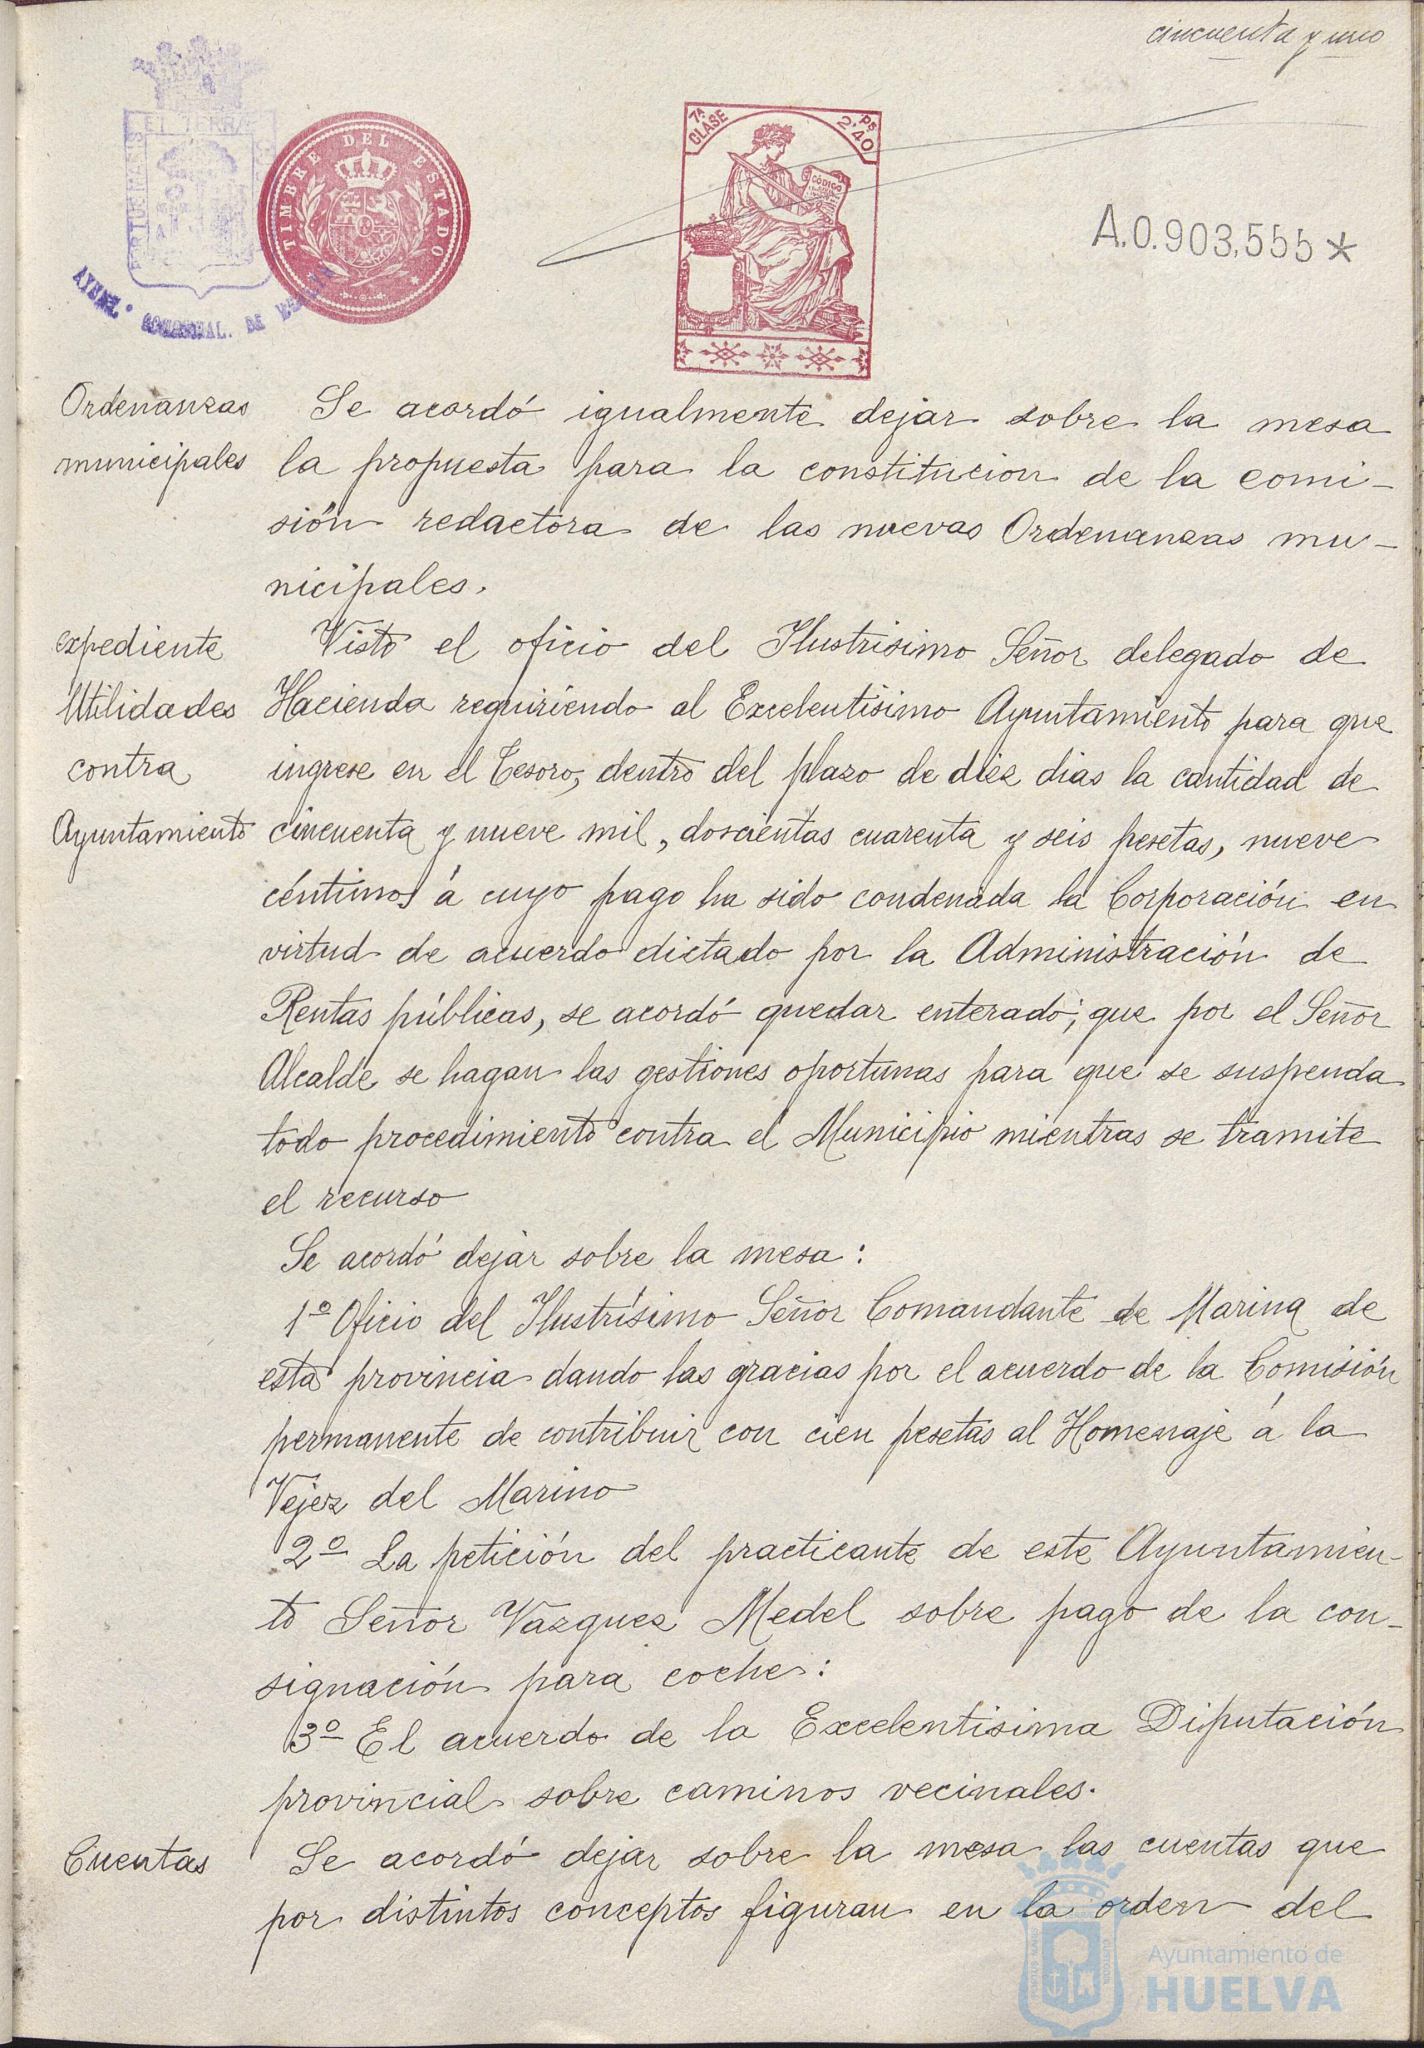 cincuenta y uno
TIMBRE DEL ESTADO
7ª CLASE
Ps 2'40
CÓDIGO
A.0.903,555*
AYUNT.º DE
Ordenanzas
municipales
Se acordó igualmente dejar sobre la mesa
la propuesta para la constitucion de la comi-
sión redactora de las nuevas Ordenanzas mu-
nicipales.
expediente
Utilidades
contra
Ayuntamiento
Visto el oficio del Ilustrisimo Señor delegado de
Hacienda requiriendo al Excelentisimo Ayuntamiento para que
ingrese en el Tesoro, dentro del plazo de diez dias la cantidad de
cincuenta y nueve mil, doscientas cuarenta y seis pesetas, nueve
céntimos á cuyo pago ha sido condenada la Corporación en
virtud de acuerdo dictado por la Administración de
Rentas públicas, se acordó quedar enterado; que por el Señor
Alcalde se hagan las gestiones oportunas para que se suspenda
todo procedimiento contra el Municipio mientras se tramite
el recurso
Se acordó dejar sobre la mesa:
1º Oficio del Ilustrísimo Señor Comandante de Marina de
esta provincia dando las gracias por el acuerdo de la Comisión
permanente de contribuir con cien pesetas al Homenaje á la
Vejez del Marino
2º La petición del practicante de este Ayuntamien-
to Señor Vazquez Medel sobre pago de la con-
signación para coche:
3º El acuerdo de la Excelentisima Diputación
provincial sobre caminos vecinales.
Cuentas
Se acordó dejar sobre la mesa las cuentas que
por distintos conceptos figuran en la orden del
Ayuntamiento de
HUELVA